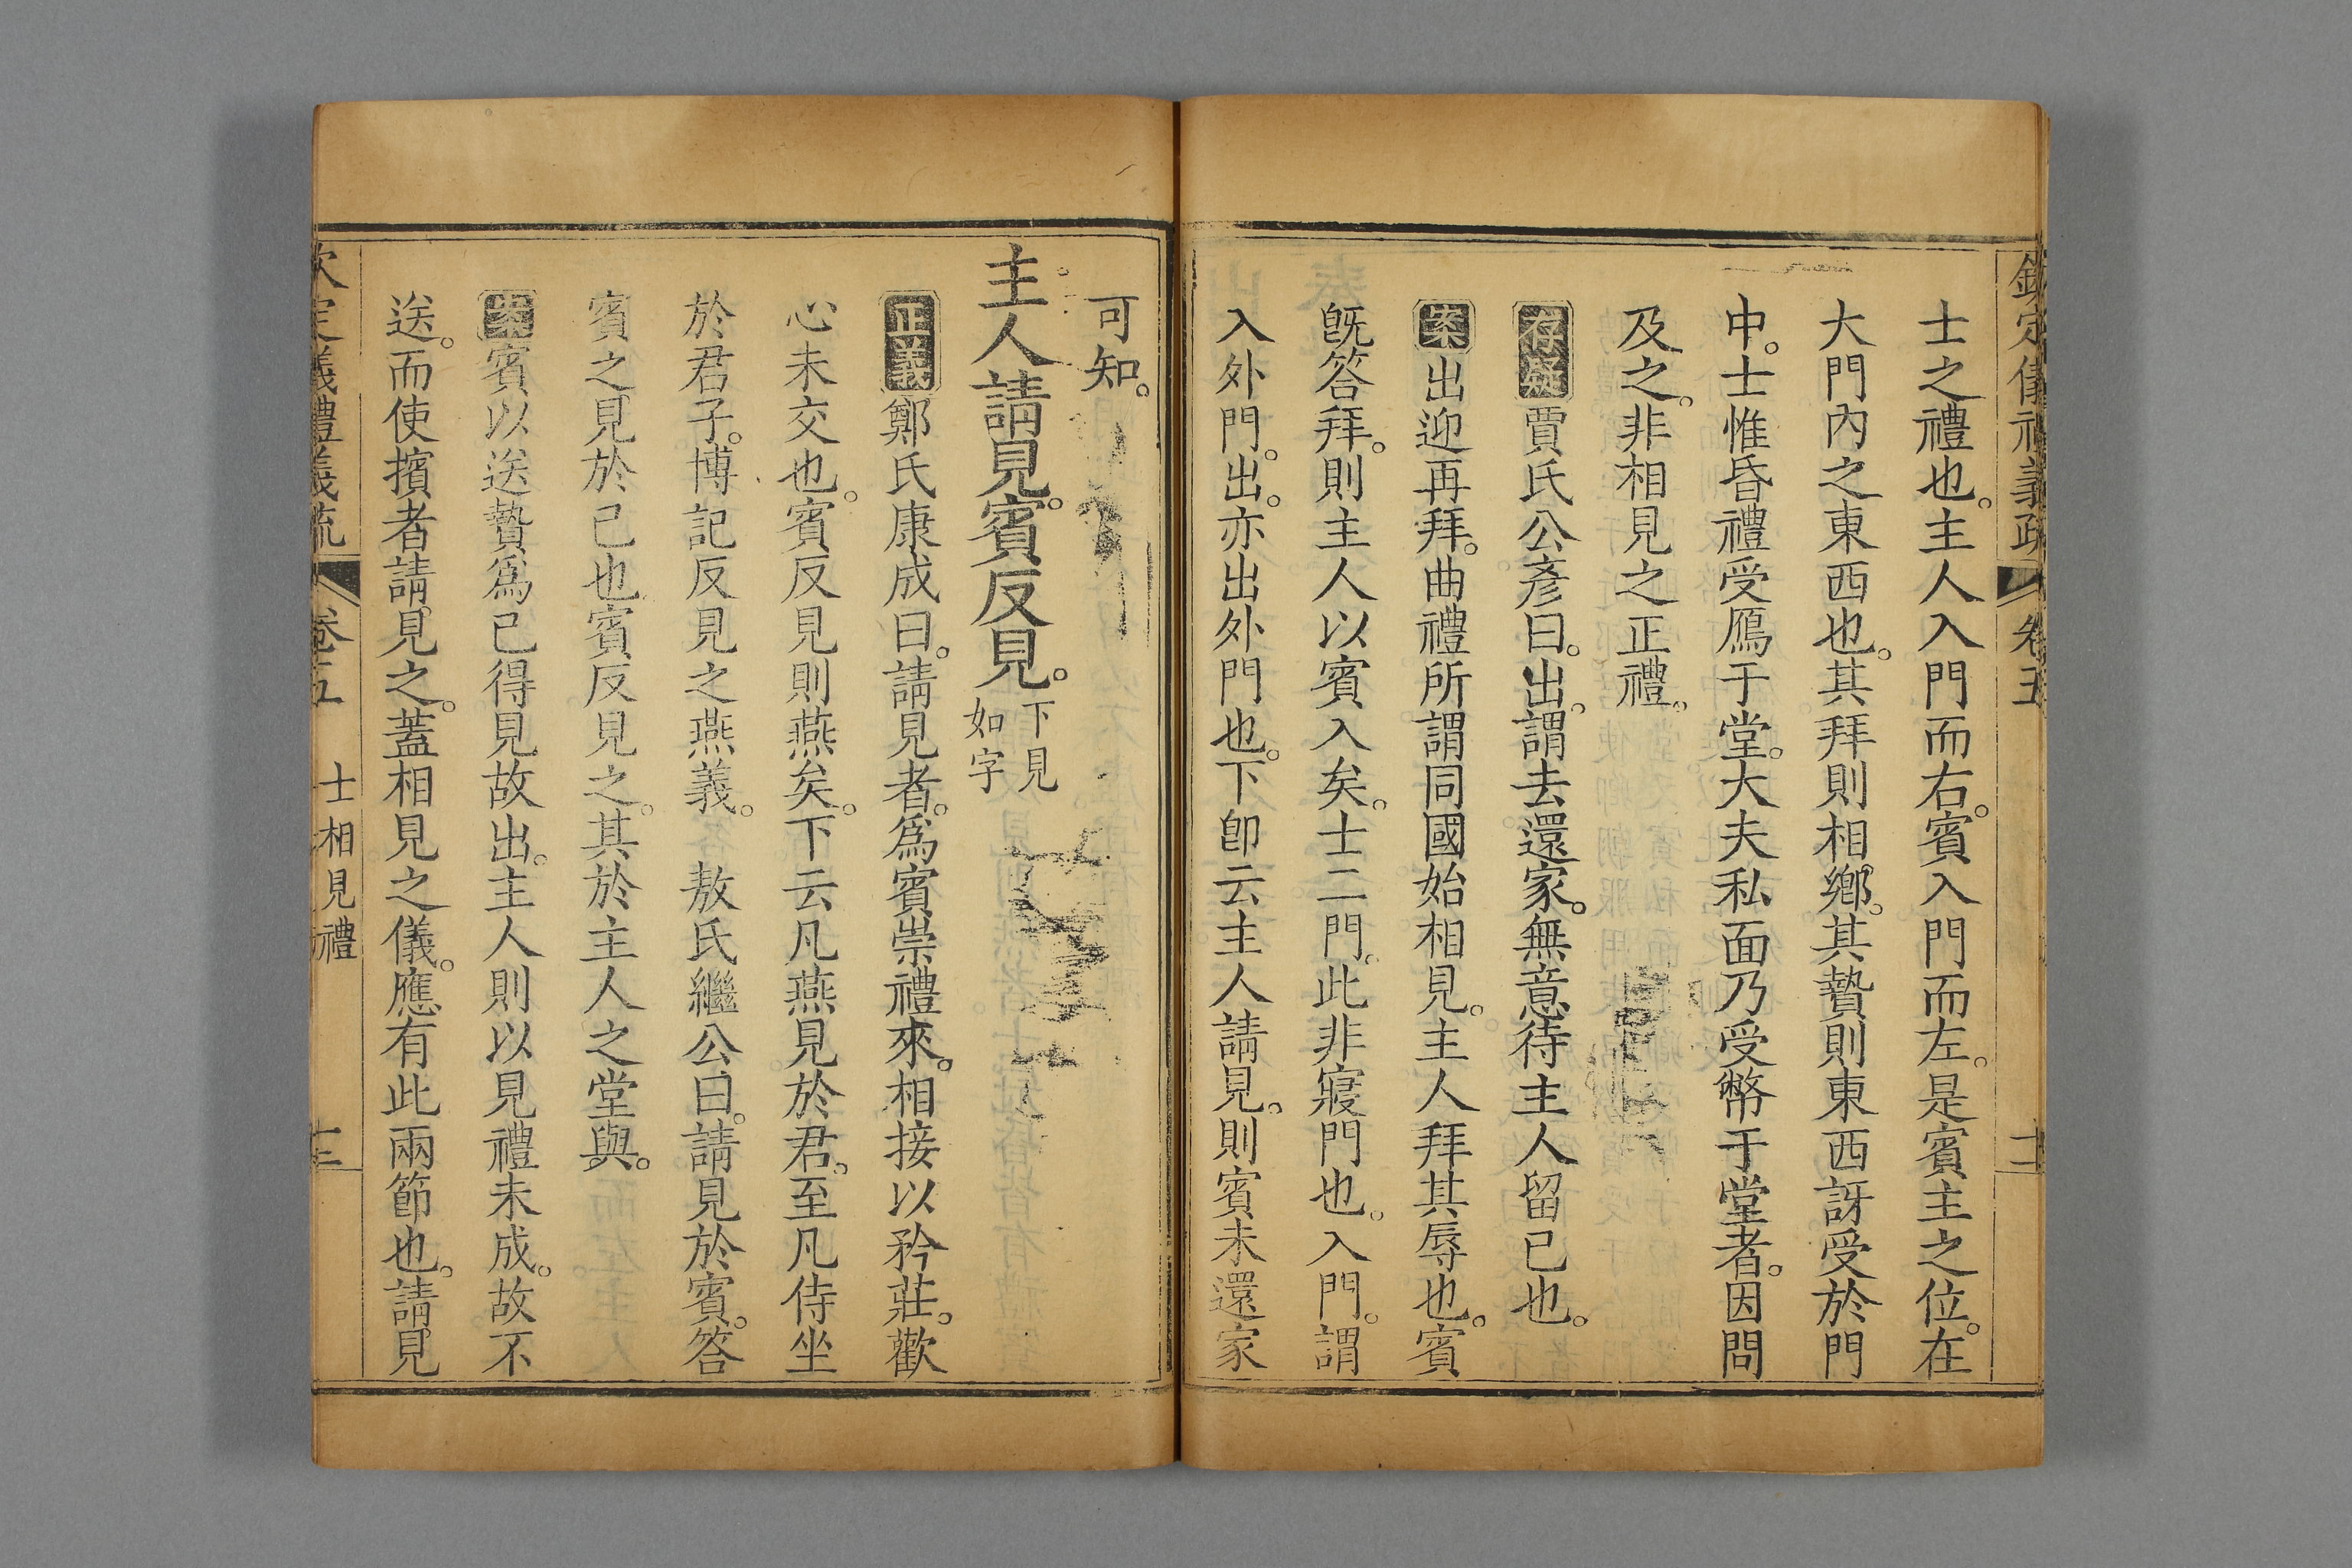 欽定儀禮義疏 卷五 十二
士之禮也。主人入門而右。賓入門而左。是賓主之位。在
大門內之東西也。其拜則相鄉。其贄則東西訝受於門
中。士惟昏禮受鴈于堂。大夫私面乃受幣于堂者。因問
及之。非相見之正禮。
存疑 賈氏公彥曰。出。謂去還家。無意待主人留已也。
案 出迎再拜。曲禮所謂同國始相見。主人拜其辱也。賓
旣答拜。則主人以賓入矣。士二門。此非寢門也。入門。謂
入外門。出。亦出外門也。下卽云主人請見。則賓未還家
可知。
主人請見。賓反見。下見
如字
正義 鄭氏康成曰。請見者。爲賓崇禮來。相接以矜莊。歡
心未交也。賓反見則燕矣。下云凡燕見於君。至凡侍坐
於君子。博記反見之燕義。 敖氏繼公曰。請見於賓。答
賓之見於已也賓反見之。其於主人之堂與。
案 賓以送贄爲已得見故出。主人則以見禮未成。故不
送。而使擯者請見之。蓋相見之儀。應有此兩節也。請見
欽定儀禮義疏 卷五 士相見禮 十三